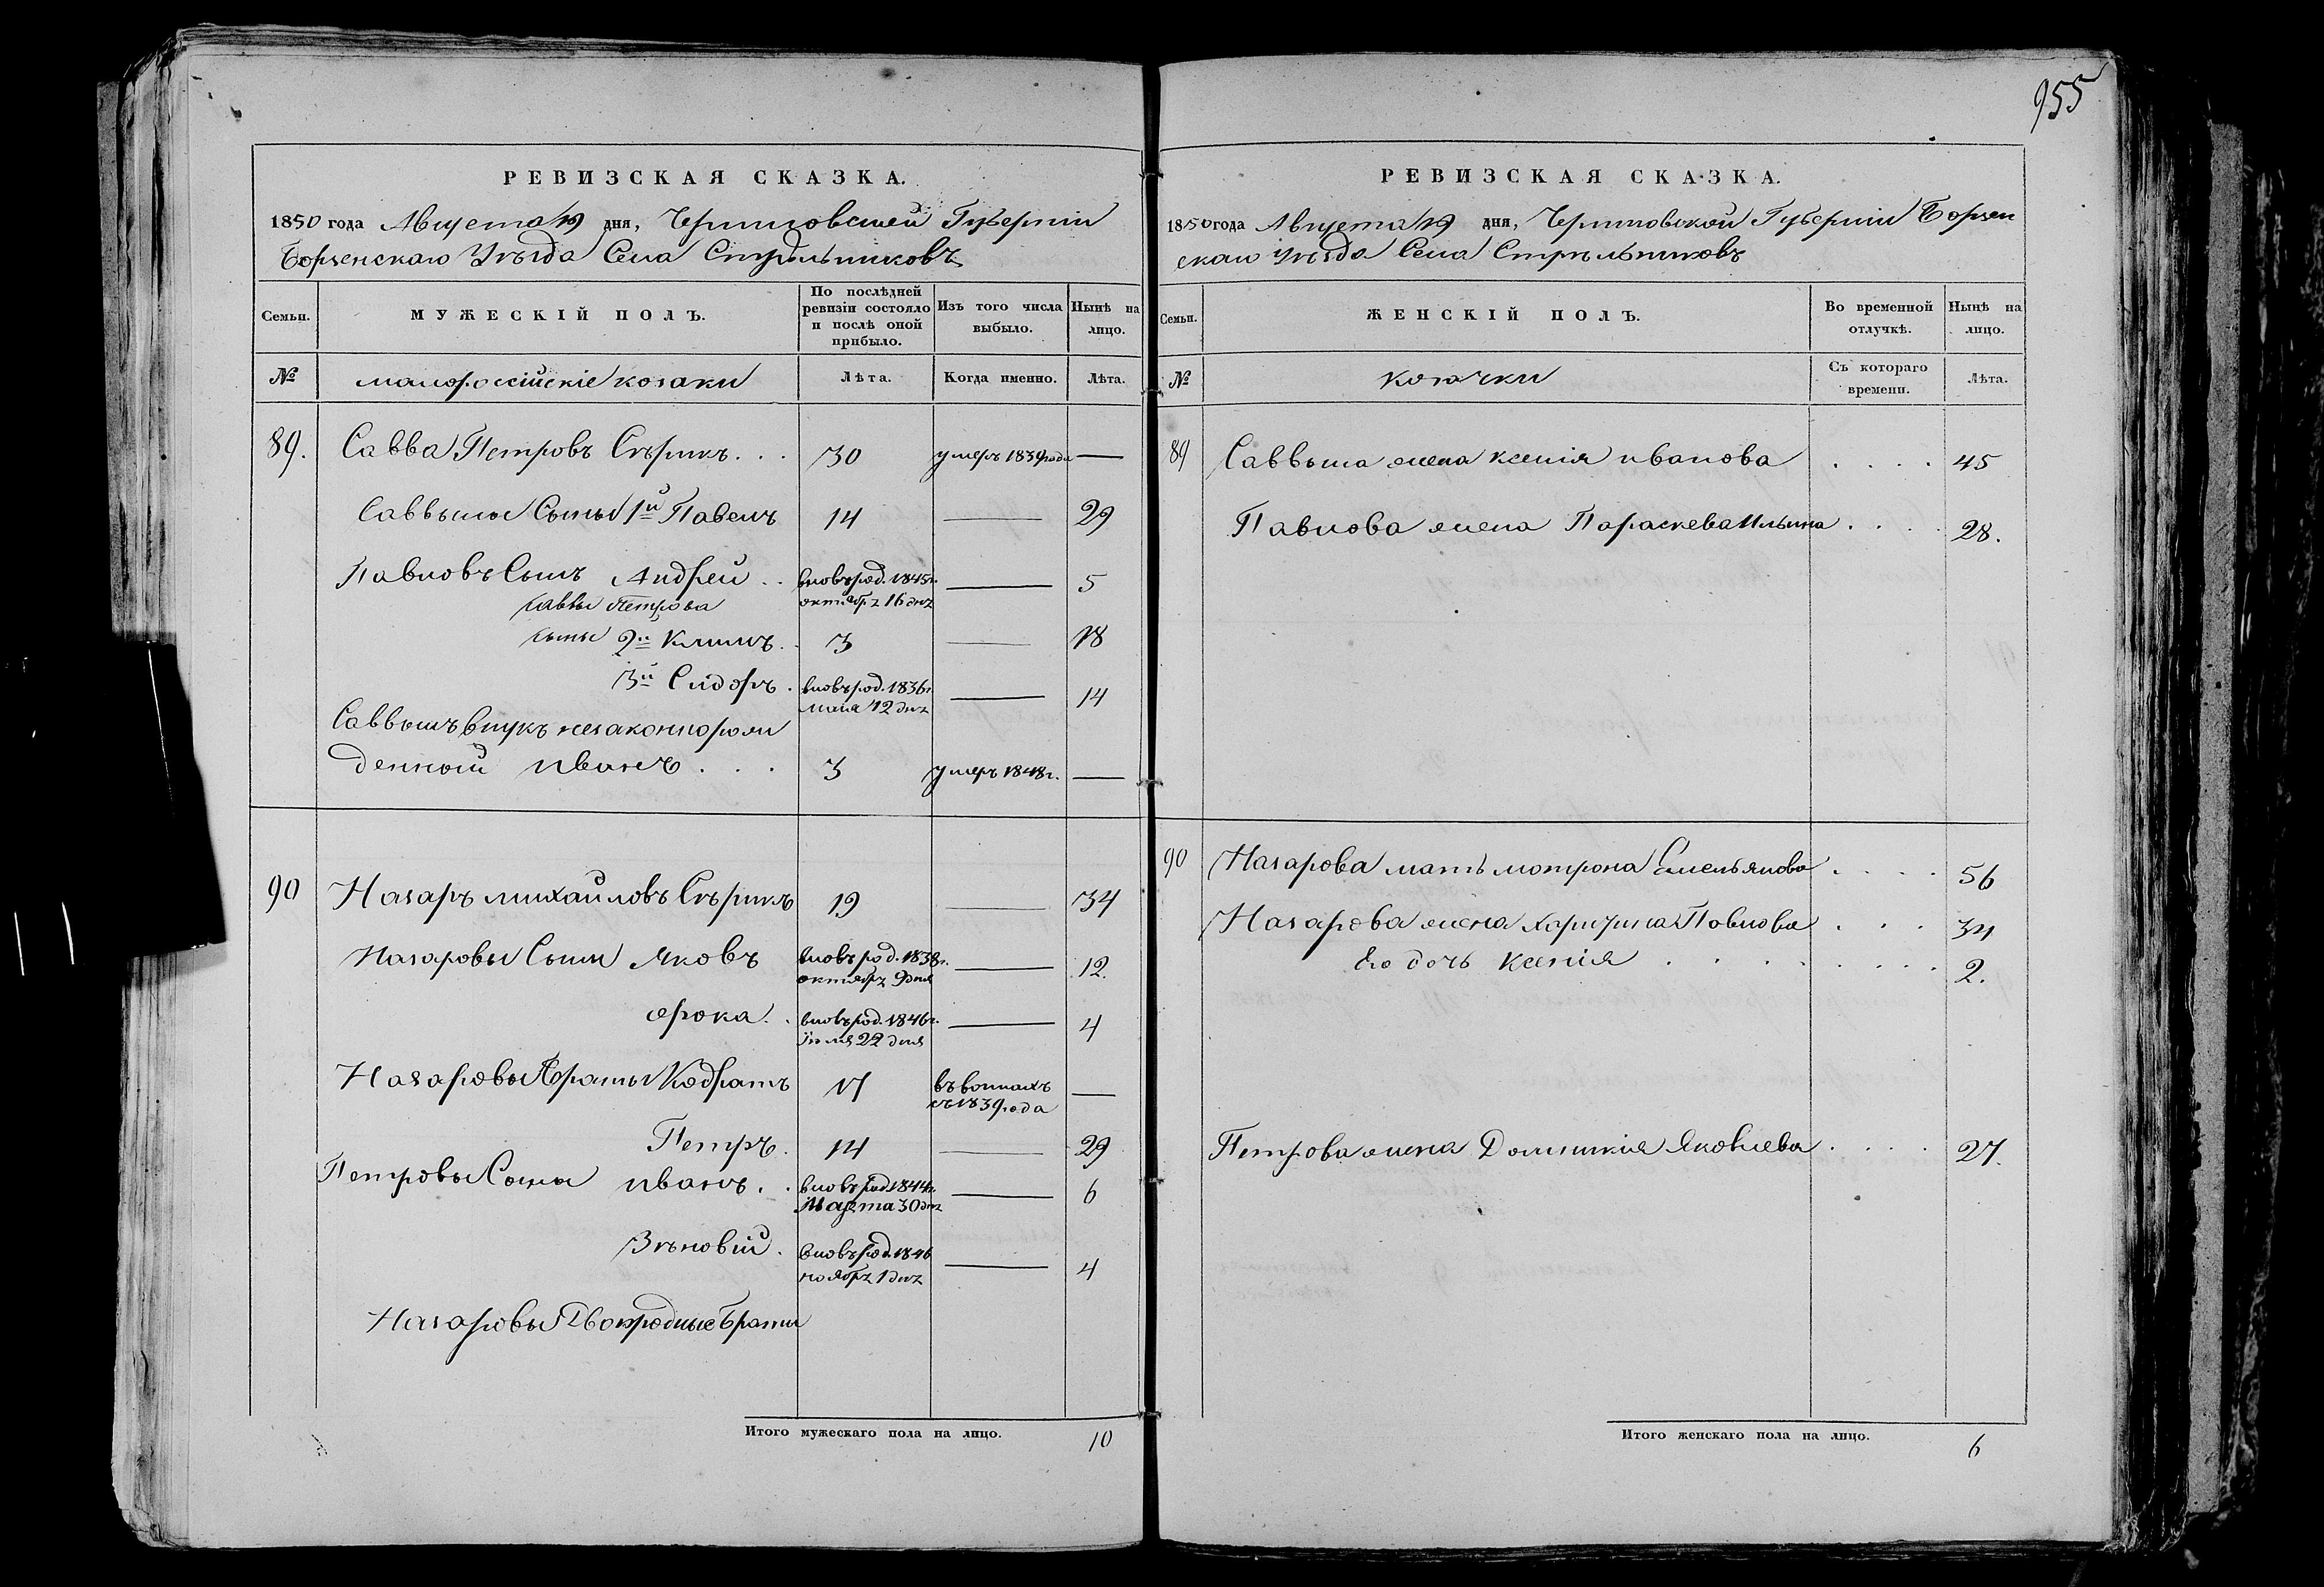 955
РЕВИЗСКАЯ СКАЗКА.
1850 года Августа 19 дня, Черниговской Губерніи
Борзенскаго Уѣзда Села Стрѣльниковъ
Семьи.
МУЖЕСКІЙ ПОЛЪ.
По послѣдней ревизіи состояло и послѣ оной прибыло.
Изъ того числа выбыло.
Нынѣ на лицо.
№
малороссійскіе козаки
Лѣта.
Когда именно.
Лѣта.
89. Савва Петровъ Сѣрикъ . . . 30 умеръ 1839 года —
Саввыны Сыны 1й Павелъ 14 — 29
Павловъ Сынъ Андрей . . вновь род. 1845 г. октябр 16 дня — 5
Саввы Петрова
сыны 2й Климъ . . 3 — 18
3й Сидоръ . вновь род. 1836 г. мая 12 дня — 14
Саввынъ внукъ незаконнорож
денной иванъ . . . 3 умеръ 1848 г. —
90 Назаръ михайловъ Сѣрикъ 19 — 34
Назаровы Сыны яковъ вновь род. 1838 г. октябр 9 дня — 12.
. вновь род. 1846 г. 22 дня — 4
Назаровы братья Кодратъ 17 въ воинахъ съ 1839 года —
Петръ. 14 — 29
Петровы Сыны иванъ . . вновь род. 1844 г. Марта 30 дня — 6
Зѣновій . вновь род. 1846 ноябр 1 дня — 4
Назаровы Двоюродные братья
Итого мужескаго пола на лицо. 10
РЕВИЗСКАЯ СКАЗКА.
1850 года Августа 19 дня, Черниговской Губерніи Борзен
скаго Уѣзда Села Стрѣльниковъ
Семьи.
ЖЕНСКІЙ ПОЛЪ.
Во временной отлучкѣ.
Нынѣ на лицо.
№
козачки
Съ котораго времени.
Лѣта.
89 Саввына жена ксенія иванова . . . . 45
Павлова жена Параскева Ильина . . . . 28.
90 Назарова мать мотрона Емельянова . . . . 56
Назарова жена харитина Павлова . . . 34
Его дочь ксенія . . . . . . . . 2.
Петрова жена Домникія Яковлева . . . . 27.
Итого женскаго пола на лицо. 6